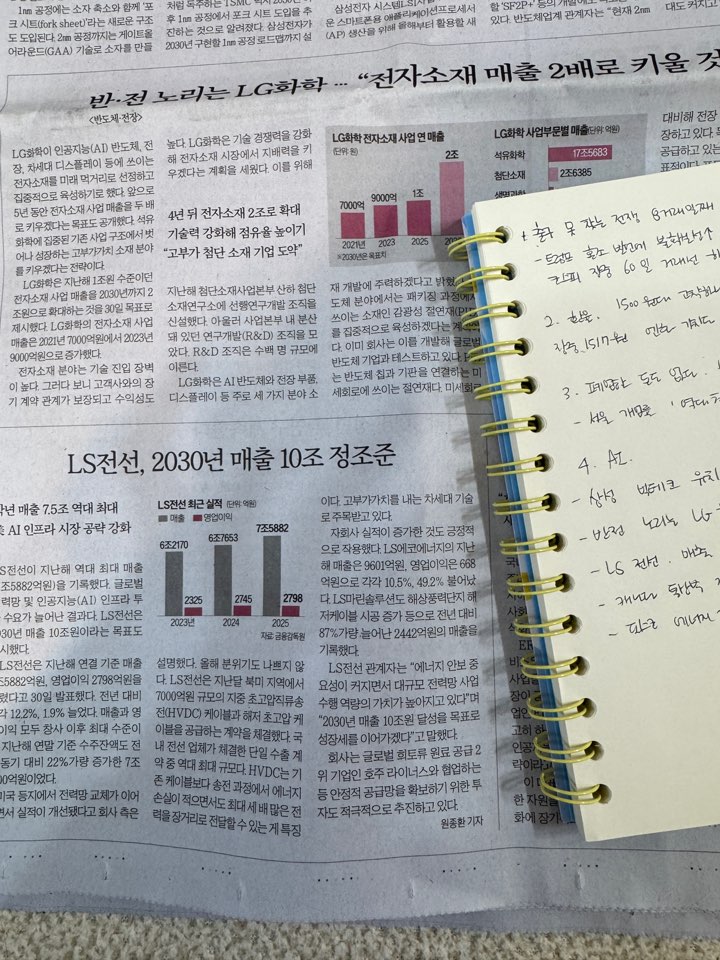 1nm 공정에는 소자 축소와 함께 '포
크 시트(fork sheet)'라는 새로운 구조
도 도입된다. 2nm 공정까지는 게이트올
어라운드(GAA) 기술로 소자를 만들
처럼 독주하는 TSMC
후 1nm 공정에서 포크 시트 도입을 추
진하는 것으로 알려졌다. 삼성전자가
2030년 구현할 1nm 공정 로드맵까지 설
삼성전자 시스템LSI사업
운 스마트폰용 애플리케이션프로세서
(AP) 생산을 위해 올해부터 활용할 새
할 'SF2P+' 등의 개발에도
다. 반도체업계 관계자는 "현재 2nm
대도 커지고
반·전 노리는 LG화학 … "전자소재 매출 2배로 키울 것
<반도체·전장>
LG화학이 인공지능(AI) 반도체, 전
장, 차세대 디스플레이 등에 쓰이는
전자소재를 미래 먹거리로 선정하고
집중적으로 육성하기로 했다. 앞으로
5년 동안 전자소재 사업 매출을 두 배
로 키우겠다는 목표도 공개했다. 석유
화학에 집중된 기존 사업 구조에서 벗
어나 성장하는 고부가가치 소재 분야
를 키우겠다는 전략이다.
LG화학은 지난해 1조원 수준이던
전자소재 사업 매출을 2030년까지 2
조원으로 확대하는 것을 30일 목표로
제시했다. LG화학의 전자소재 사업
매출은 2021년 7000억원에서 2023년
9000억원으로 증가했다.
전자소재 분야는 기술 진입 장벽
이 높다. 그러다 보니 고객사와의 장
기 계약 관계가 보장되고 수익성도
높다. LG화학은 기술 경쟁력을 강화
해 전자소재 시장에서 지배력을 키
우겠다는 계획을 세웠다. 이를 위해
4년 뒤 전자소재 2조로 확대
기술력 강화해 점유율 높이기
"고부가 첨단 소재 기업 도약"
지난해 첨단소재사업본부 산하 첨단
소재연구소에 선행연구개발 조직을
신설했다. 아울러 사업본부 내 분산
돼 있던 연구개발(R&D) 조직을 모
았다. R&D 조직은 수백 명 규모에
이른다.
LG화학은 AI 반도체와 전장 부품,
디스플레이 등 주로 세 가지 분야 소
LG화학 전자소재 사업 연 매출
(단위: 원)
7000억
9000억
1조
2조
2021년
2023
2025
※2030년은 목표치
LG화학 사업부문별 매출(단위:억원)
석유화학
17조5683
첨단소재
2조6385
생명과학
재 개발에 주력하겠다고 밝혔
도체 분야에서는 패키징 과정에
쓰이는 소재인 감광성 절연재(PI
를 집중적으로 육성하겠다는 계
다. 이미 회사는 이를 개발해 글로벌
반도체 기업과 테스트하고 있다.
는 반도체 칩과 기판을 연결하는 미
세회로에 쓰이는 절연재다. 미세회로
대비해 전장
장하고 있다.
공급하고 있는
LS전선, 2030년 매출 10조 정조준
작년 매출 7.5조 역대 최대
美 AI 인프라 시장 공략 강화
LS전선이 지난해 역대 최대 매출
조5882억원)을 기록했다. 글로벌
력망 및 인공지능(AI) 인프라 투
수요가 늘어난 결과다. LS전선은
30년 매출 10조원이라는 목표도
시했다.
LS전선은 지난해 연결 기준 매출
5882억원, 영업이익 2798억원을
렸다고 30일 발표했다. 전년 대비
각 12.2%, 1.9% 늘었다. 매출과 영
이익 모두 창사 이후 최대 수준이
지난해 연말 기준 수주잔액도 전
동기 대비 22%가량 증가한 7조
00억원이었다.
미국 등지에서 전력망 교체가 이어
면서 실적이 개선됐다고 회사 측은
LS전선 최근 실적 (단위: 억원)
매출
영업이익
6조2170
6조7653
7조5882
2325
2745
2798
2023년
2024
2025
자료: 금융감독원
설명했다. 올해 분위기도 나쁘지 않
다. LS전선은 지난달 북미 지역에서
7000억원 규모의 지중 초고압직류송
전(HVDC) 케이블과 해저 초고압 케
이블을 공급하는 계약을 체결했다. 국
내 전선 업체가 체결한 단일 수출 계
약 중 역대 최대 규모다. HVDC는 기
존 케이블보다 송전 과정에서 에너지
손실이 적으면서도 최대 세 배 많은 전
력을 장거리로 전달할 수 있는 게 특징
이다. 고부가가치를 내는 차세대 기술
로 주목받고 있다.
자회사 실적이 증가한 것도 긍정적
으로 작용했다. LS에코에너지의 지난
해 매출은 9601억원, 영업이익은 668
억원으로 각각 10.5%, 49.2% 불어났
다. LS마린솔루션도 해상풍력단지 해
저케이블 시공 증가 등으로 전년 대비
87%가량 늘어난 2442억원의 매출을
기록했다.
LS전선 관계자는 "에너지 안보 중
요성이 커지면서 대규모 전력망 사업
수행 역량의 가치가 높아지고 있다"며
"2030년 매출 10조원 달성을 목표로
성장세를 이어가겠다"고 말했다.
회사는 글로벌 희토류 원료 공급 2
위 기업인 호주 라이너스와 협업하는
등 안정적 공급망을 확보하기 위한 투
자도 적극적으로 추진하고 있다.
원종환 기자
1. 출구 못 찾는 전쟁
2. 환율. 1500
3.
- 서울
4. AI.
- 삼성 빅테크 유치
- 반전 노리는 LG
- LS 전선. 매출